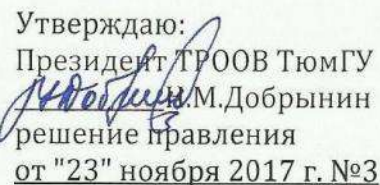 Утверждаю:
Президент ТРООВ ТюмГУ
Н.М.Добрынин
решение правления
от "23" ноября 2017 г. №3